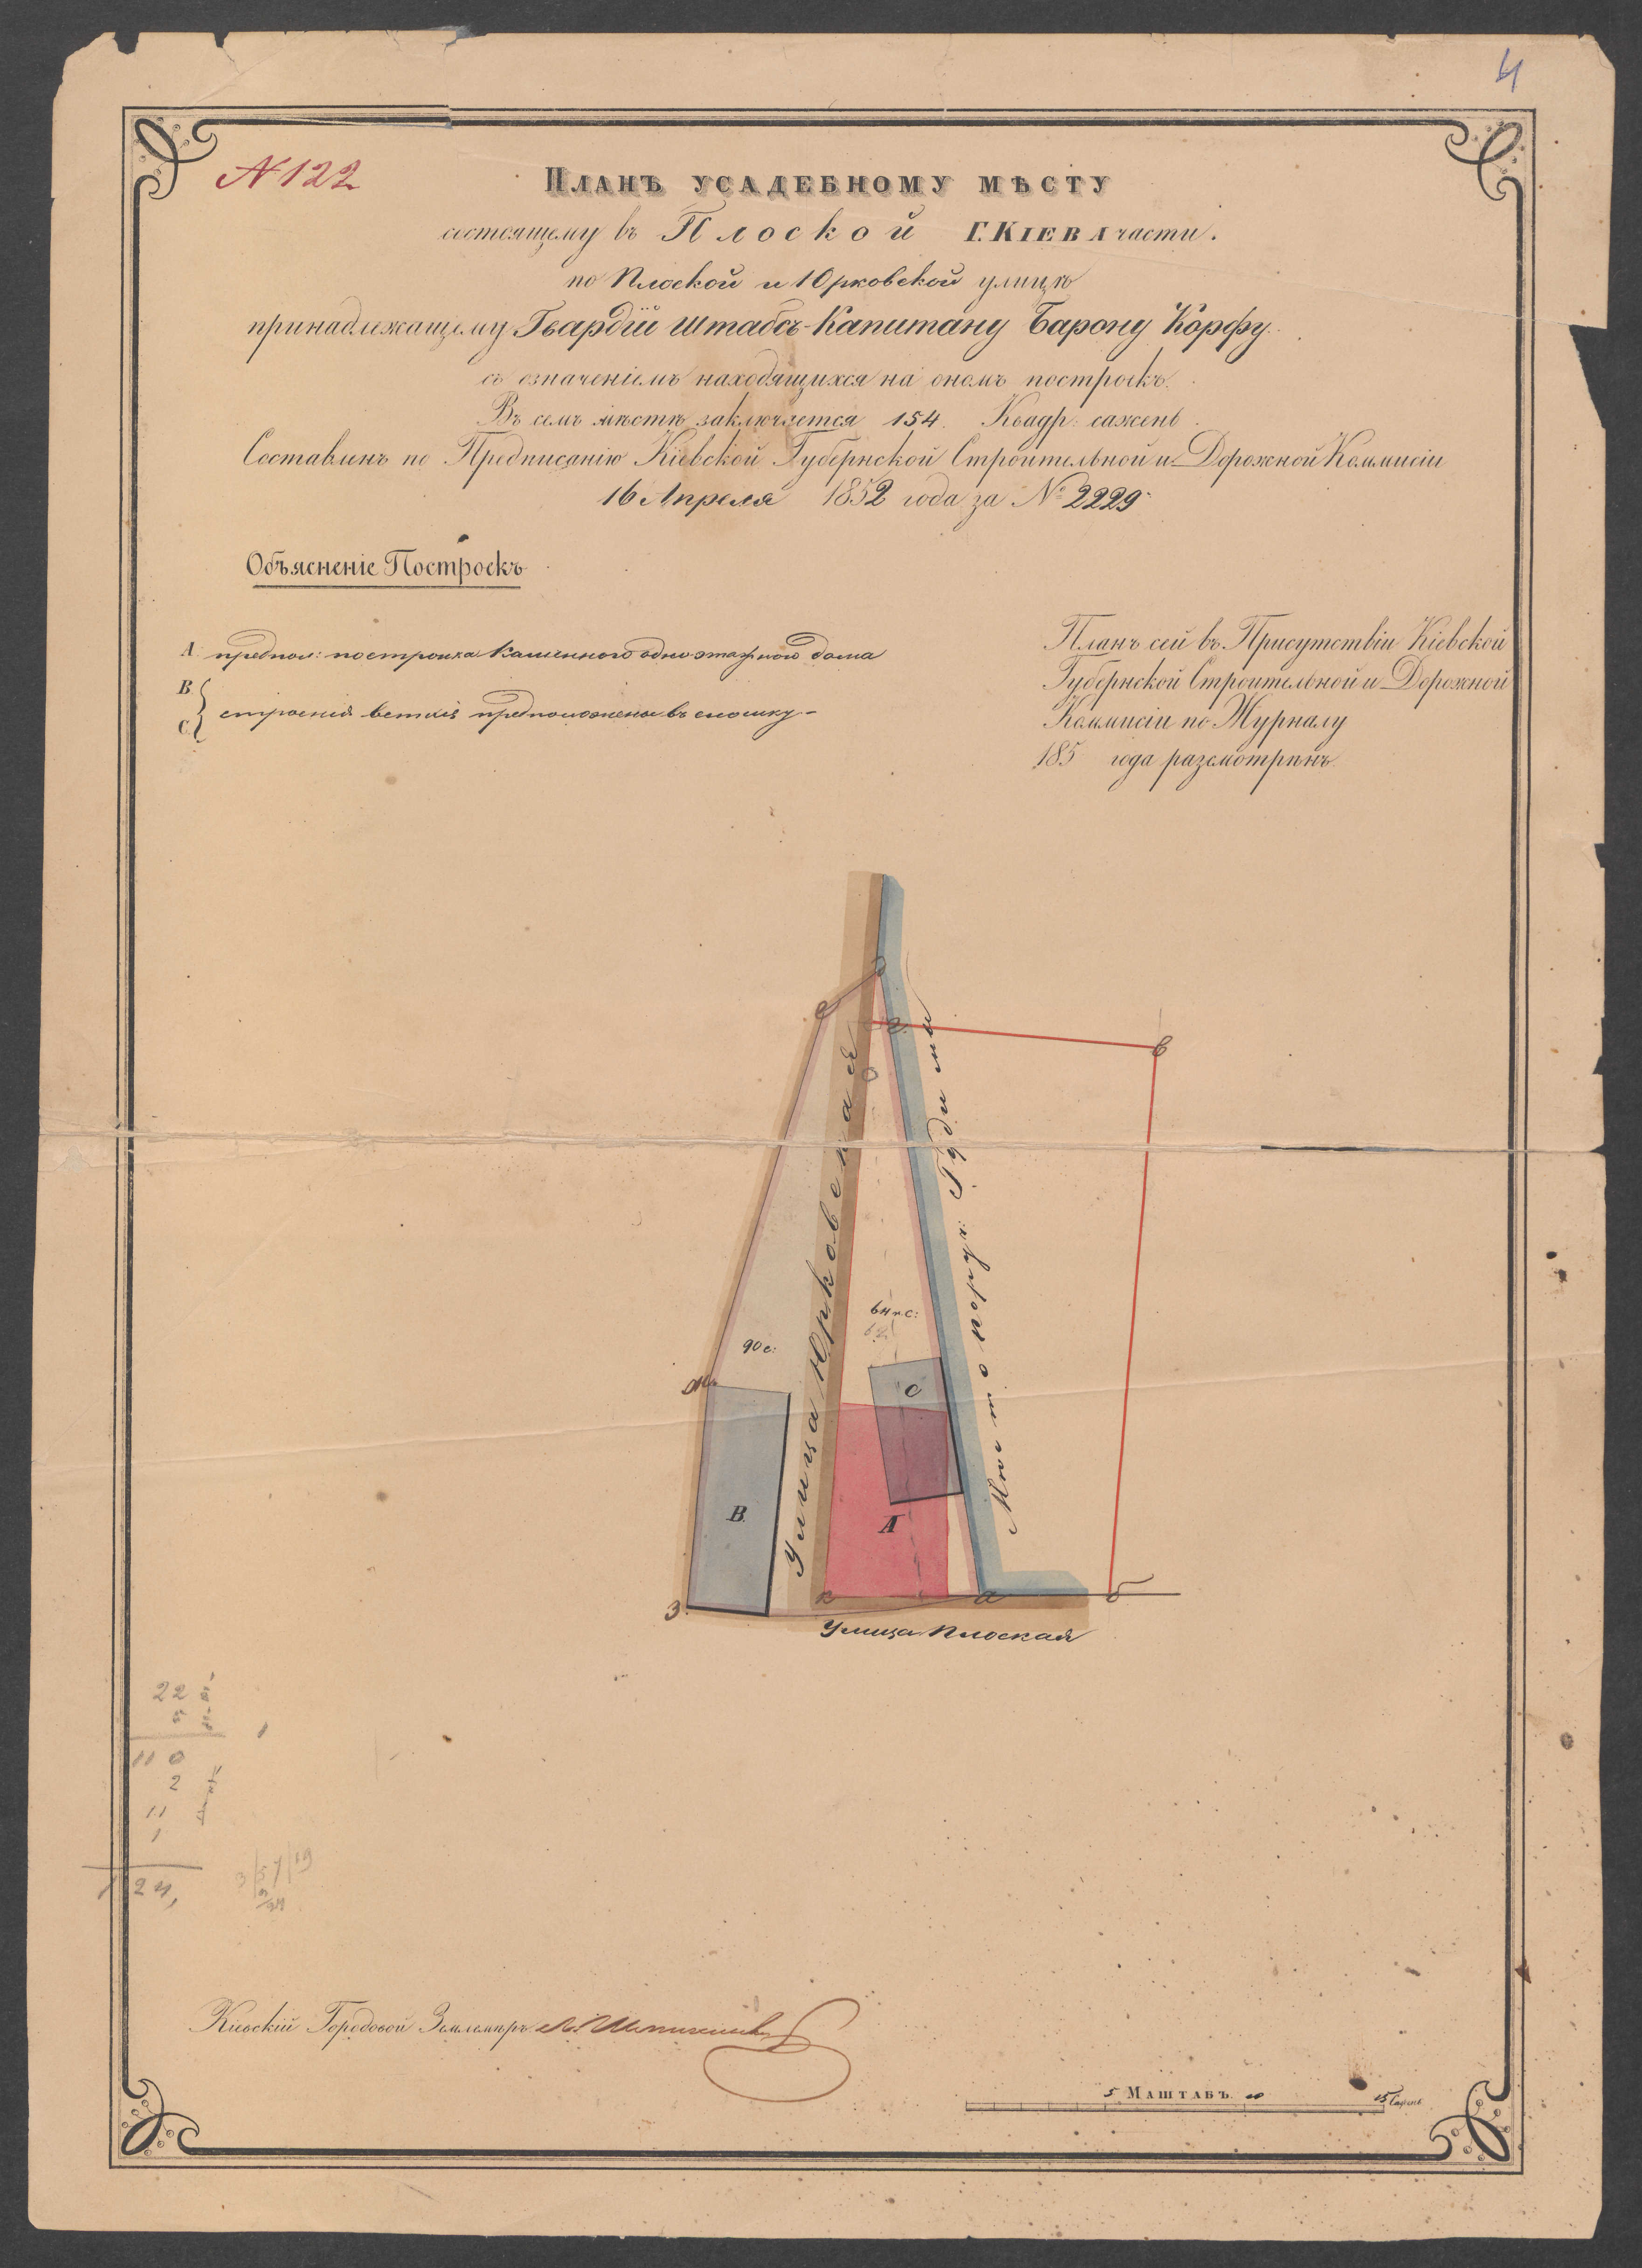 4
N 122
ПЛАНЪ УСАДЕБНОМУ МѢСТУ
состоящему въ Плоской Г. КІЕВА части.
по Плоской и Юрковской улицѣ
принадлежащему Гвардіи Штабсъ-Капитану Барону Корфу.
съ означеніемъ находящихся на ономъ построекъ.
Въ семъ мѣстѣ заключается 154. Квадр: сажень.
Составленъ по Предписанію Кіевской Губернской Строительной и Дорожной Коммисіи
16 Апреля 1852 года за № 2229
Объясненіе Построекъ
А. предпол: постройка Каменного одноэтажного дома
В.
С. строенія ветхія предположены въ сломку
Планъ сей въ Присутствіи Кіевской
Губернской Строительной и Дорожной
Коммисіи по Журналу
185 года разсмотрѣнъ.
д
е
г
в
Улица Юрковская
64 к. с:
62
90 с:
ж
С
В.
А
з
к
а
б
Улица Плоская
22
5
1
110
2
11
1
124,
Кіевскій Городовой Землемѣръ
5 МАШТАБЪ 10 15 Сажень